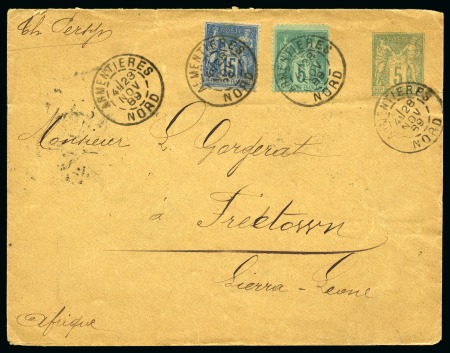 15
5
5
ARMENTIERES
4E 23
NOV
89
NORD
ARMENTIERES
NORD
ARMENTIERES
NORD
ARMENTIERES
23
NOV
89
NORD
Monsieur L. Gorgerat
à Freetown
Sierra-Leone
Afrique